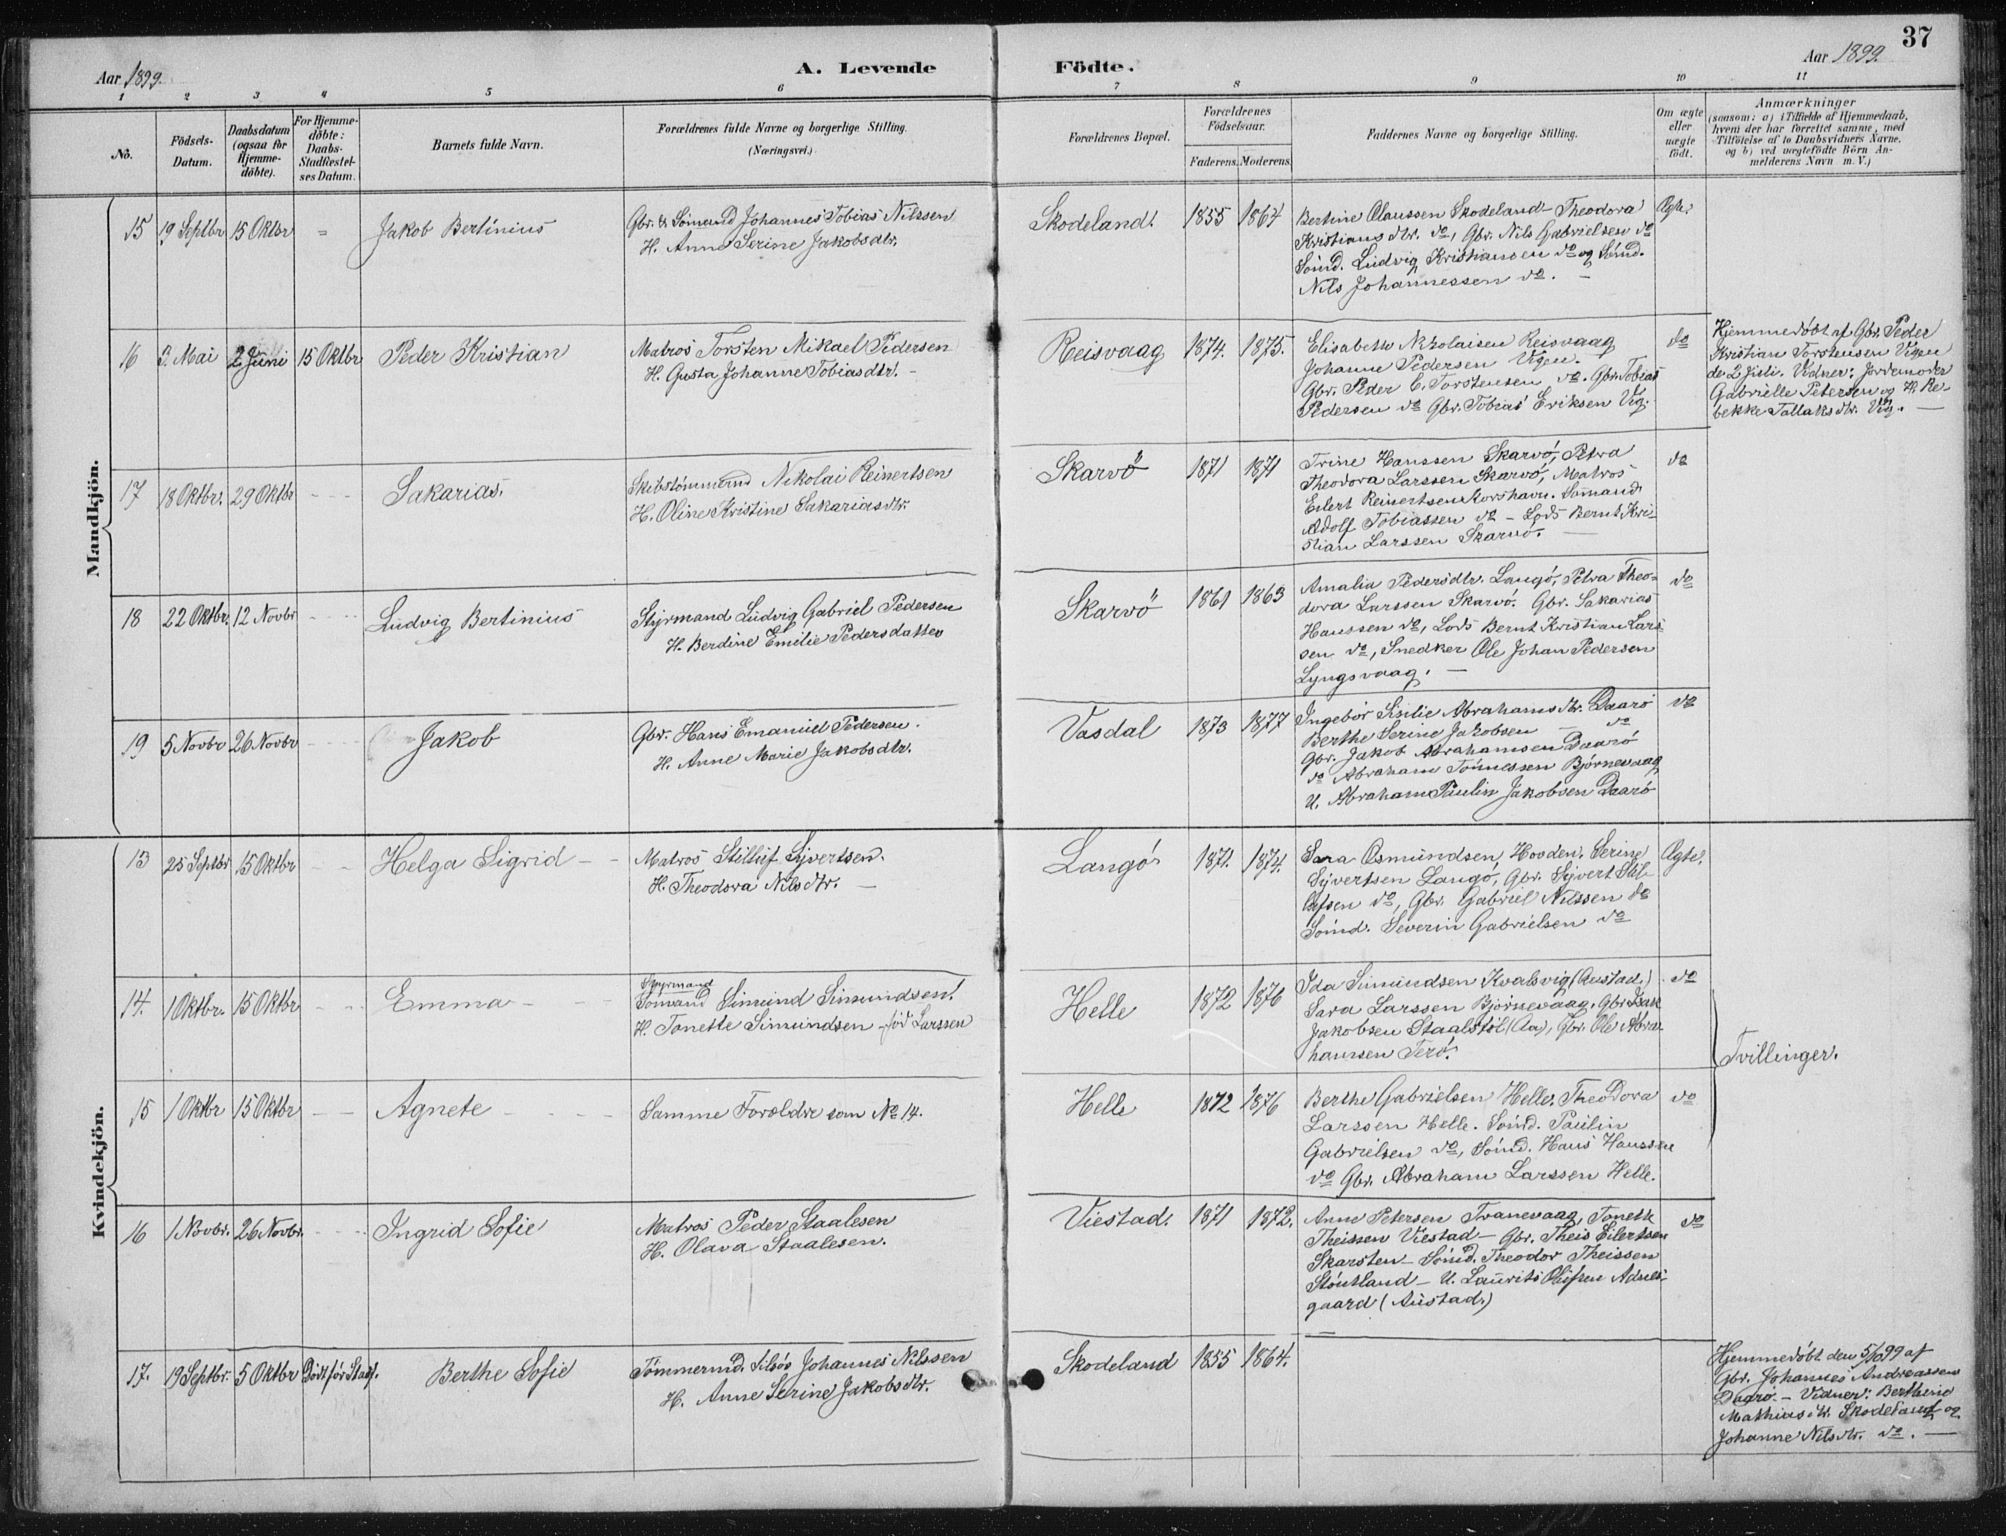 37
Aar 1899.
A. Levende Födte.
Aar 1899.
1 2 3 4 5 6 7 8 9 10 11
No.
Födsels-Datum.
Daabsdatum (ogsaa for Hjemme-döbte).
For Hjemme-döbte: Daabs-Stadfæstel-ses Datum.
Barnets fulde Navn.
Forældrenes fulde Navne og borgerlige Stilling. (Næringsvei.)
Forældrenes Bopæl.
Forældrenes Födselsaar.
Faderens. Moderens.
Faddernes Navne og borgerlige Stilling.
Om ægte eller uægte födt.
Anmærkninger
(saasom: a) i Tilfælde af Hjemmedaab,
hvem der har forrettet samme, med
Tilföielse af to Daabsvidners Navne,
og b) ved uægtefödte Börn An-
melderens Navn m. V.)
Mandkjön.
15 19 Septbr 15 Oktbr = Jakob Bertinius
Gbr. & Sömand Johannes Tobias Nilssen
H. Anne Serine Jakobsdtr.
Skodeland. 1855 1864
Bertine Olaussen Skodeland – Theodora
Kristiansdtr. do, Gbr. Nils Gabrielsen do
Sömd. Ludvig Kristiansen do og Sömd.
Nils Johannessen do. –
Ægte.
16 3. Mai 2 Juni 15 Oktbr Peder Kristian
Matros Torsten Mikael Pedersen
H. Gusta Johanne Tobiasdtr. –
Reisvaag 1874. 1875.
Elisabeth Nikolaisen Reisvaag
Johanne Pedersen Vigen.
Gbr. Peder C. Torstensen do. Gbr. Tobias
Pedersen do Gbr. Tobias Eriksen Vig.
do
Hjemmedöbt af Gbr. Peder
Kristian Torstensen Vigen
d. 2 Juli. Vidner: Jordemoder
Gabrielle Petersen og H. Re-
bekke Tallaksdtr. Vig. –
17 18 Oktbr. 29 Oktbr – – – Sakarias.
Skibstömmermand Nikolai Reinertsen
H. Oline Kristine Sakariasdtr.
Skarvö 1871 1871
Trine Hanssen Skarvö, Petra
Theodora Larssen Skarvö, Matros
Eilert Reinertsen Korshavn. Sömand
Adolf Tobiassen do – Lods Bernt Kri-
stian Larssen Skarvö. –
do
18 22 Oktbr. 12 Novbr – – – Ludvig Bertinius
Styrmand Ludvig Gabriel Pedersen
H. Berdine Emilie Pedersdatter
Skarvö 1861 1863
Amalia Pedersdtr. Langö, Petra Theo-
dora Larssen Skarvö. Gbr. Sakarias
Hanssen do, Lods Bernt Kristian Lars-
sen do, Snedker Ole Johan Pedersen
Lyngsvaag. –
do
19 5 Novbr 26 Novbr – – – Jakob
Gbr. Hans Emanuel Pedersen.
H. Anne Marie Jakobsdtr.
Vasdal 1873 1877
Ingebör Sisilie Abrahamsdtr. Daarö
Berthe Serine Jakobsen do
Gbr. Jakob Abrahamsen Daarö
do Abraham Tönnessen Björnevaag
U. Abraham Paulin Jakobsen Daarö
do
Kvindekjön.
13 25 Septbr 15 Oktbr – – Helga Sigrid – –
Matros Stilluf Syvertsen.
H. Theodora Nilsdtr. –
Langö 1871. 1874.
Sara Osmundsen Hovden. Serine
Syvertsen Langö, Gbr. Syvert Stil-
lufsen do, Gbr. Gabriel Nilssen do
Sömd. Severin Gabrielsen do
Ægte.
14. 1 Oktbr. 15 Oktbr – – Emma – –
Styrmand
Sömand Simund Simundsen.
H. Tonette Simundsen – föd Larssen
Helle 1872 1876
Ida Simundsen Kvalsvig (Austad.)
Sara Larssen Björnevaag. Gbr Isak
Jakobsen Staalstöl (Aa), Gbr. Ole Abra-
hamsen Terö.
do
Tvillinger.
15 1 Oktbr 15 Oktbr – – Agnete – – – –
Samme Forældre som No 14.
Helle 1872 1876
Berthe Gabrielsen Helle. Theodora
Larssen Helle. Sömd. Paulin
Gabrielsen do, Sömd. Hans Hanssen
do Gbr. Abraham Larssen Helle.
do
16 1 Novbr. 26 Novbr. – – – Ingrid Sofie
Matros Peder Staalesen
H. Olava Staalesen.
Viestad. 1871 1872.
Anne Petersen Tranevaag, Tonette
Theissen Viestad – Gbr. Theis Eilertsen
Skarsten – Sömd. Theodor Theissen
Stöutland – U. Laurits Olufsen Adnes-
gaard (Austad.)
do
17. 19 Septbr. 5 Oktbr Död för Stadf. Berthe Sofie
Tömmermd. tilsös Johannes Nilssen
H. Anne Serine Jakobsdtr.
Skodeland 1855 1864. –
Hjemmedöbt den 5/10 99 af
Gbr. Johannes Andreassen
Daarö. – Vidner: Bertherie
Mathiasdtr. Skodeland og
Johanne Nilsdtr. do. –